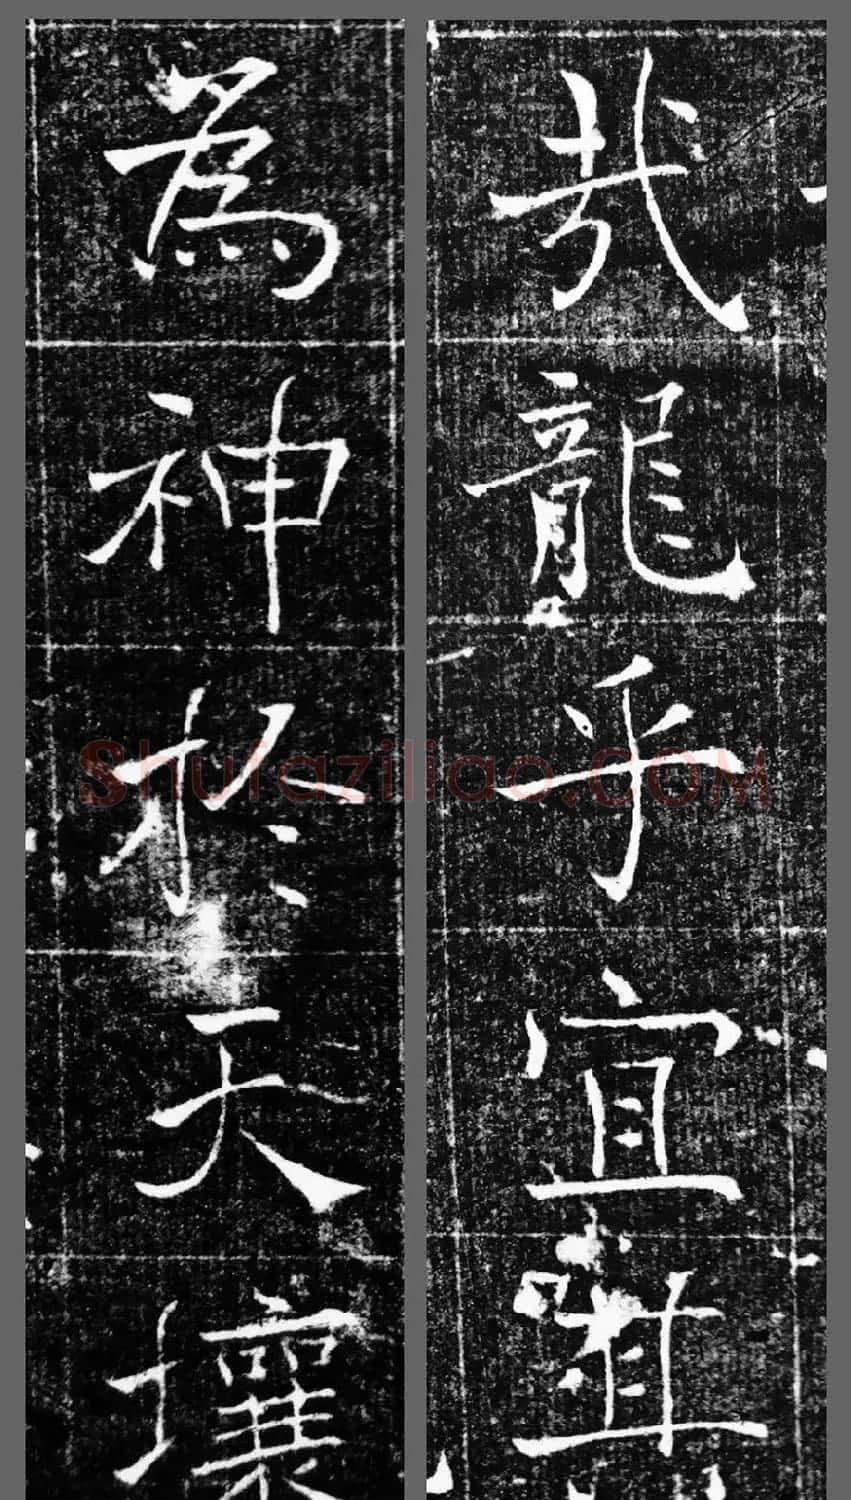 哉龍乎宜其
為神於天壤
Shufaziliao.COM